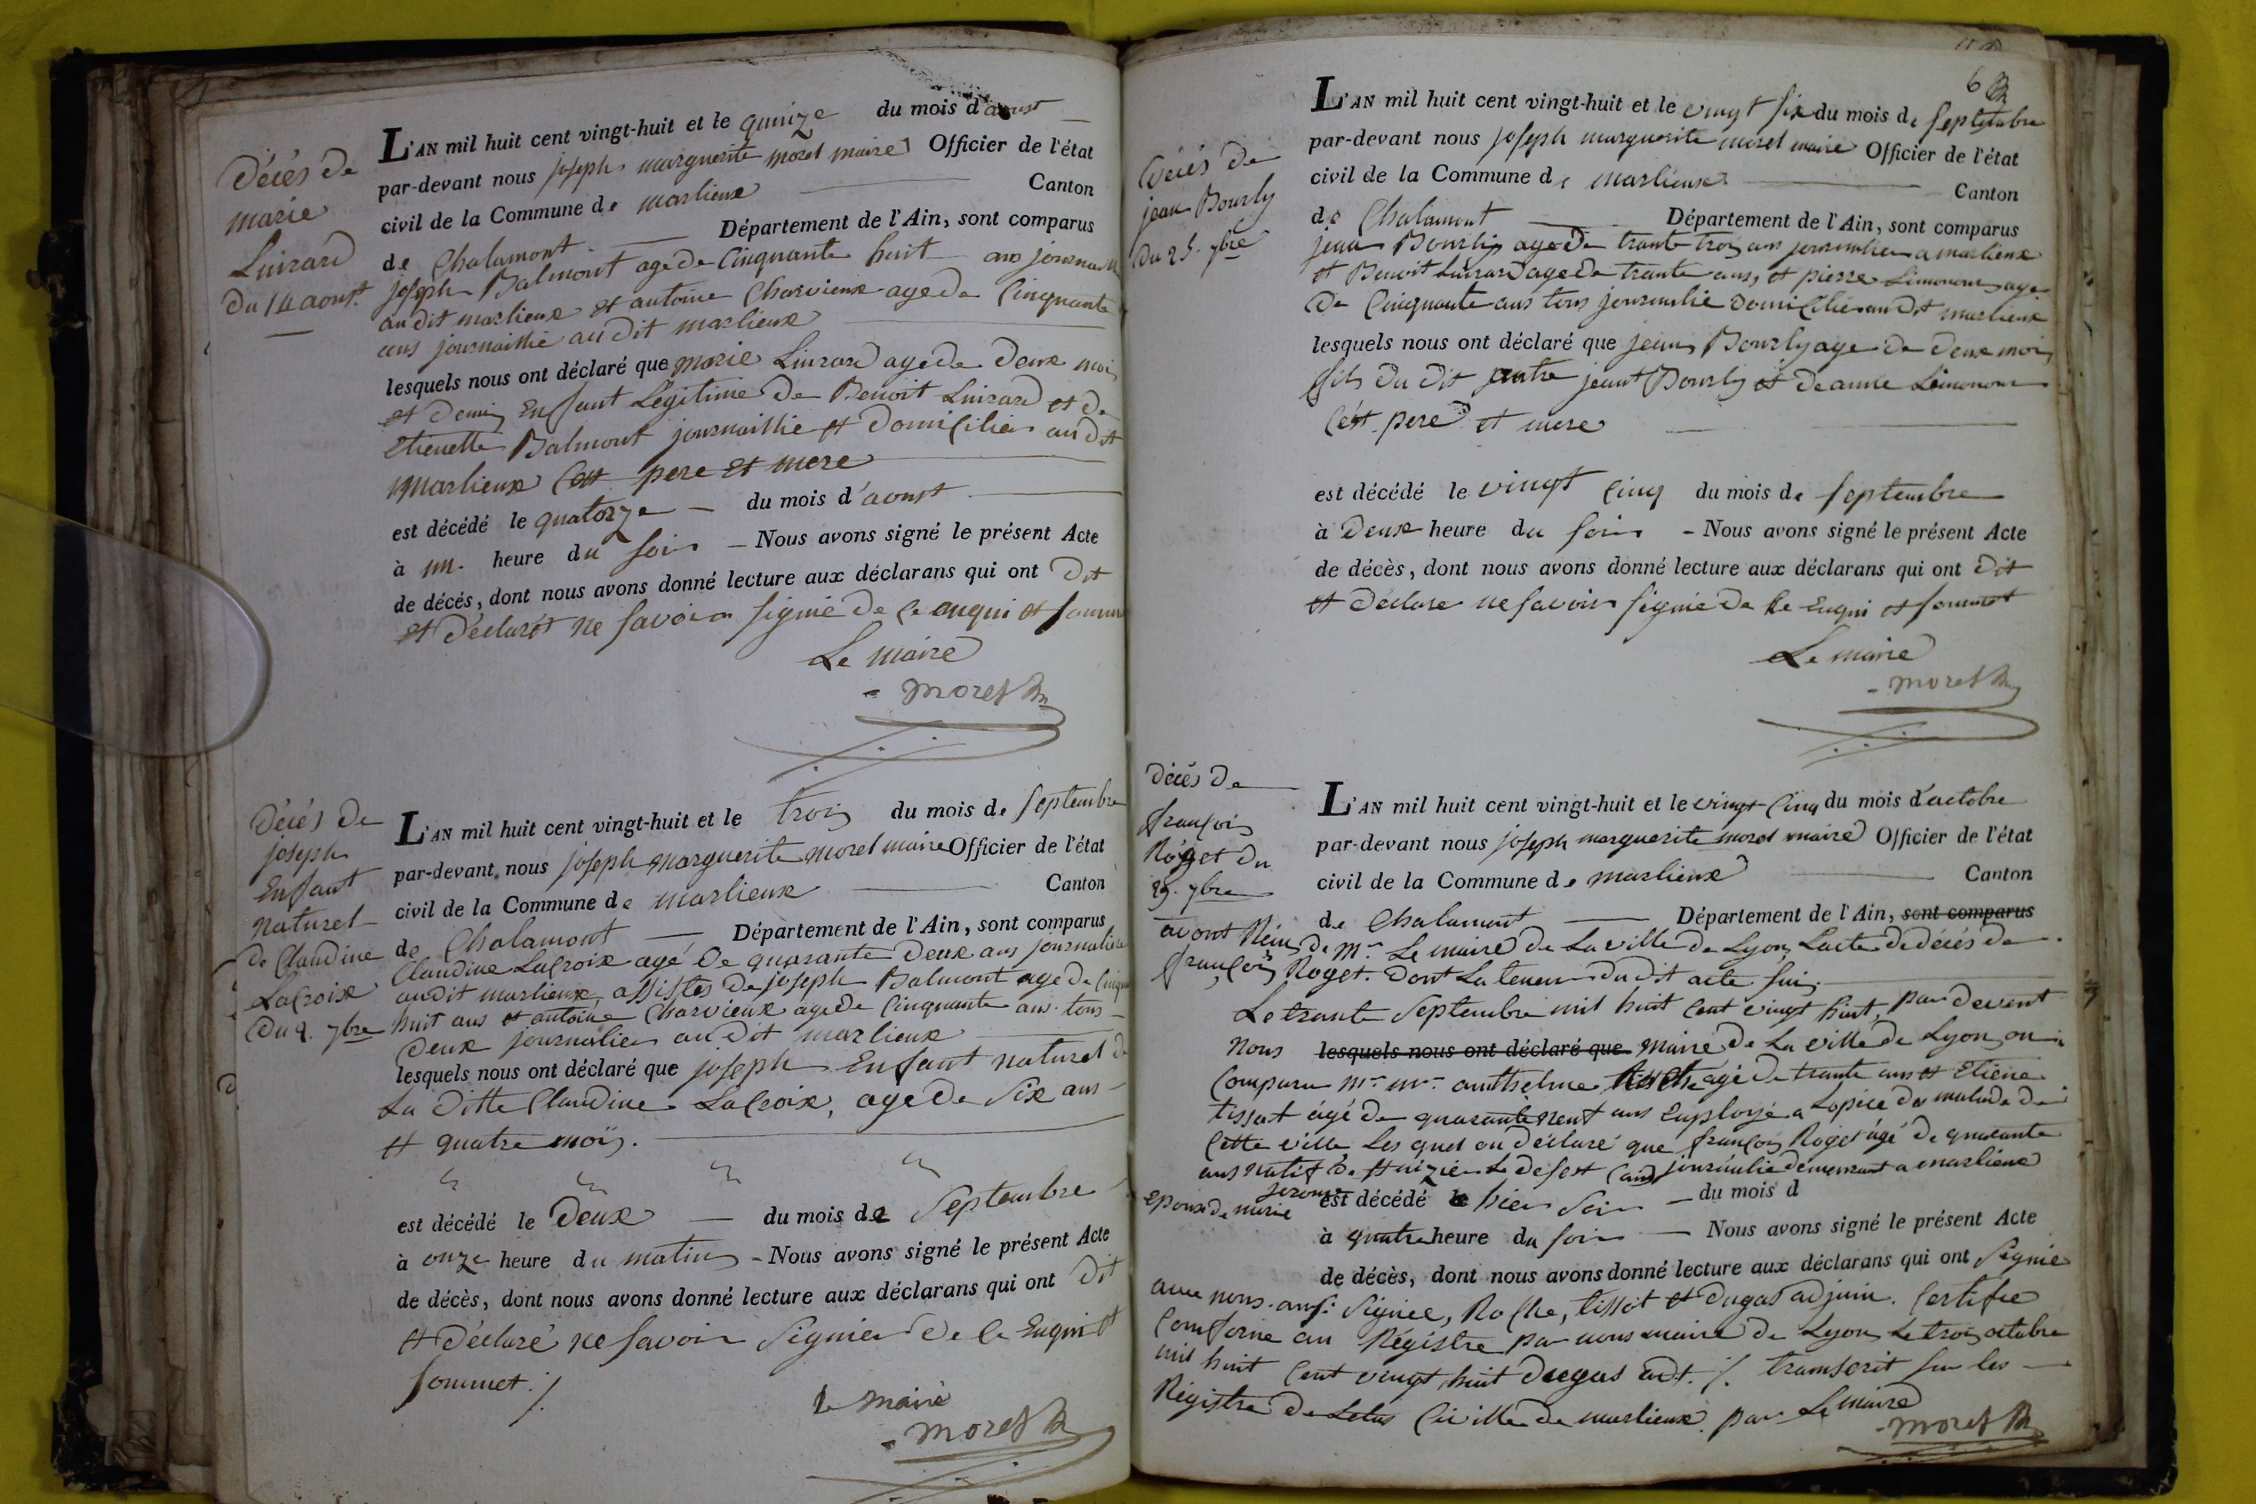 Décés de
marie
Luizard
du 14 aoust
L'AN mil huit cent vingt-huit et le quinze du mois d'aoust
par-devant nous joseph marguerite morel maire Officier de l'état
civil de la Commune de marlieux Canton
de Chalamont Département de l'Ain, sont comparus
joseph Balmont age de Cinquante huit ans journ
au dit marlieux et antoine Charvieux age de Cinquante
ans journaillié au dit marlieux
lesquels nous ont déclaré que marie Luizard agé de deux mois
et demis Enfant Legitime de Benoit Luizard et de
Etienette Balmont journaillié et domicilier au dit
Marlieux Cest pere et mere
est décédé le quatorze du mois d'aoust
à un heure du soir Nous avons signé le présent Acte
de décés, dont nous avons donné lecture aux déclarans qui ont dit
et déclarét ne savoir signié de ce enqui et somm
Le maire
morel m
Décés de
joseph
Enfant
naturel
de Claudine
LaCroix
du 2. 7bre
L'AN mil huit cent vingt-huit et le trois du mois de septembre
par-devant nous joseph marguerite morel maire Officier de l'état
civil de la Commune de marlieux Canton
de Chalamont Département de l'Ain, sont comparus
Claudine LaCroix agé de quarante deux ans journaliere
audit marlieux, assistes de joseph Balmont age de Cinqu
huit ans et antoine Charvieux age de Cinquante ans tous
deux journalier au dit marlieux
lesquels nous ont déclaré que joseph Enfant naturel de
La ditte Claudine LaCroix, age de six ans
et quatre mois.
est décédé le deux du mois de septembre
à onze heure du matin - Nous avons signé le présent Acte
de décès, dont nous avons donné lecture aux déclarans qui ont dit
et déclaré ne savoir signier de ce Enqui et
sommet ./.
le maire
morel m
6
Décés de
jean Bourly
du 25. 7bre
L'AN mil huit cent vingt-huit et le vingt six du mois de septembre
par-devant nous joseph marguerite morel maire Officier de l'état
civil de la Commune de marlieux Canton
de Chalamont Département de l'Ain, sont comparus
jean Bourly age de trante trois ans journalier a marlieux
et Benoit Luizard age de trante ans, et pierre Limonon age
de Cinquante ans tous journalié domicilié au dit marlieux
lesquels nous ont déclaré que jean Bourly age de deux mois
fils du dit jean Bourly et de anne Limonon
Cest pere et mere
est décédé le vingt cinq du mois de septembre
à deux heure du soir - Nous avons signé le présent Acte
de décès, dont nous avons donné lecture aux déclarans qui ont dit
et déclare ne savoir signié de ce Enqui et sommet
Le maire
morel m
Décés de
françois
Roget du
29. 7bre
L'AN mil huit cent vingt-huit et le vingt Cinq du mois d'octobre
par-devant nous joseph marguerite morel maire Officier de l'état
civil de la Commune de marlieux Canton
de Chalamont Département de l'Ain, sont comparus
avont Réçus de Mr. Le maire de La ville de Lyon, Lacte de décés de
françois Roget. Dont La teneur du dit acte suis.
Le trante septembre mil huit Cent vingt huit, par devent
Nous lesquels nous ont déclaré que maire de La ville de Lyon, on
Comparu mr. mr. anthelme Roche agé de trante ans et Etiene
tissot âgé de quarante neuf ans Employé a Lopice des malade de
Cette ville Les quel on déclaré que françois Roget âgé de quarante
ans natif de st nizier Le desert (ain) journalié demeurant a marlieux
epoux de marie jerome est décédé hier soir du mois d
à quatre heure du soir Nous avons signé le présent Acte
de décès, dont nous avons donné lecture aux déclarans qui ont Signié
avec nous. ansi Signiee, Roche, tissot et dugas adjoin. Certifie
Conforme au Régistre par nous maire de Lyon Le trois octobre
mil huit Cent vingt huit Dugas adt. ./. transcrit sur les
Régistre de Letas Civille de marlieux par Le maire
morel m